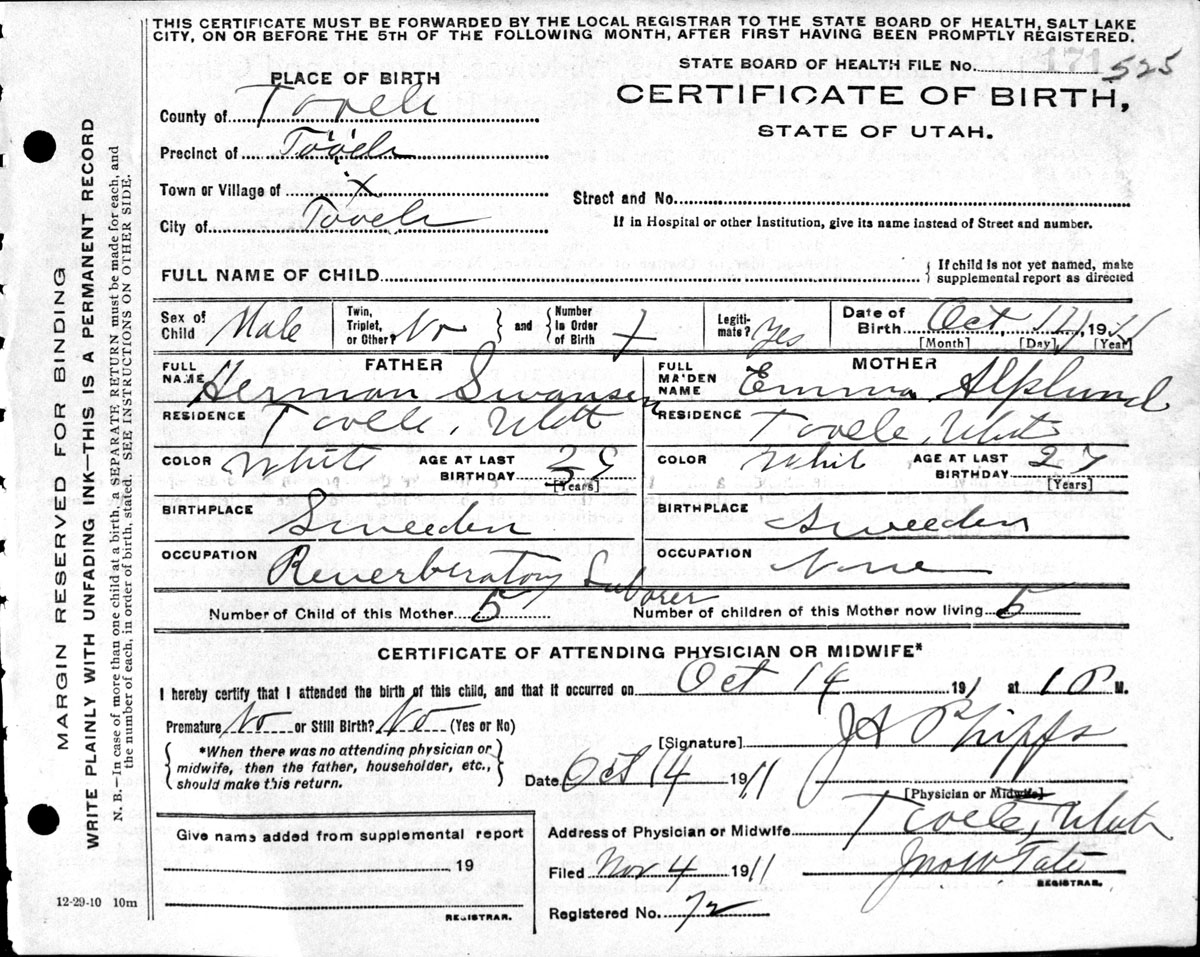 THIS CERTIFICATE MUST BE FORWARDED BY THE LOCAL REGISTRAR TO THE STATE BOARD OF HEALTH, SALT LAKE
CITY, ON OR BEFORE THE 5TH OF THE FOLLOWING MONTH, AFTER FIRST HAVING BEEN PROMPTLY REGISTERED.
STATE BOARD OF HEALTH FILE NO. 171 525
PLACE OF BIRTH
CERTIFICATE OF BIRTH,
STATE OF UTAH.
County of Tooele
Precinct of Tooele
Town or Village of x
City of Tooele
Street and No.
If in Hospital or other Institution, give its name instead of Street and number.
FULL NAME OF CHILD
{ If child is not yet named, make
supplemental report as directed
Sex of Child Male
Twin, Triplet, or Other? No } and { Number in Order of Birth
Legiti-mate? Yes
Date of Birth Oct 191
[Month] [Day] [Year]
FATHER
FULL NAME Herman Swansen
RESIDENCE Tooele, Utah
COLOR White AGE AT LAST BIRTHDAY
[Years]
BIRTHPLACE Sweeden
OCCUPATION Reverberatory Laborer
MOTHER
FULL MAIDEN NAME Emma Alplund
RESIDENCE Tooele, Utah
COLOR White AGE AT LAST BIRTHDAY 27
[Years]
BIRTHPLACE Sweeden
OCCUPATION None
Number of Child of this Mother 5 Number of children of this Mother now living 5
CERTIFICATE OF ATTENDING PHYSICIAN OR MIDWIFE*
I hereby certify that I attended the birth of this child, and that it occurred on Oct 14 1911 at 1 P M.
Premature No or Still Birth? No (Yes or No)
{ *When there was no attending physician or
midwife, then the father, householder, etc.,
should make this return. }
[Signature] JA Phipps
Date Oct 14 1911
[Physician or Midwife]
Address of Physician or Midwife Tooele, Utah
Filed Nov 4 1911 Jno W Tate
REGISTRAR.
Registered No. 72
Give name added from supplemental report
19
REGISTRAR.
12-29-10 10m
MARGIN RESERVED FOR BINDING
WRITE PLAINLY WITH UNFADING INK—THIS IS A PERMANENT RECORD
N. B.—In case of more than one child at a birth, a SEPARATE RETURN must be made for each, and
the number of each, in order of birth, stated. SEE INSTRUCTIONS ON OTHER SIDE.